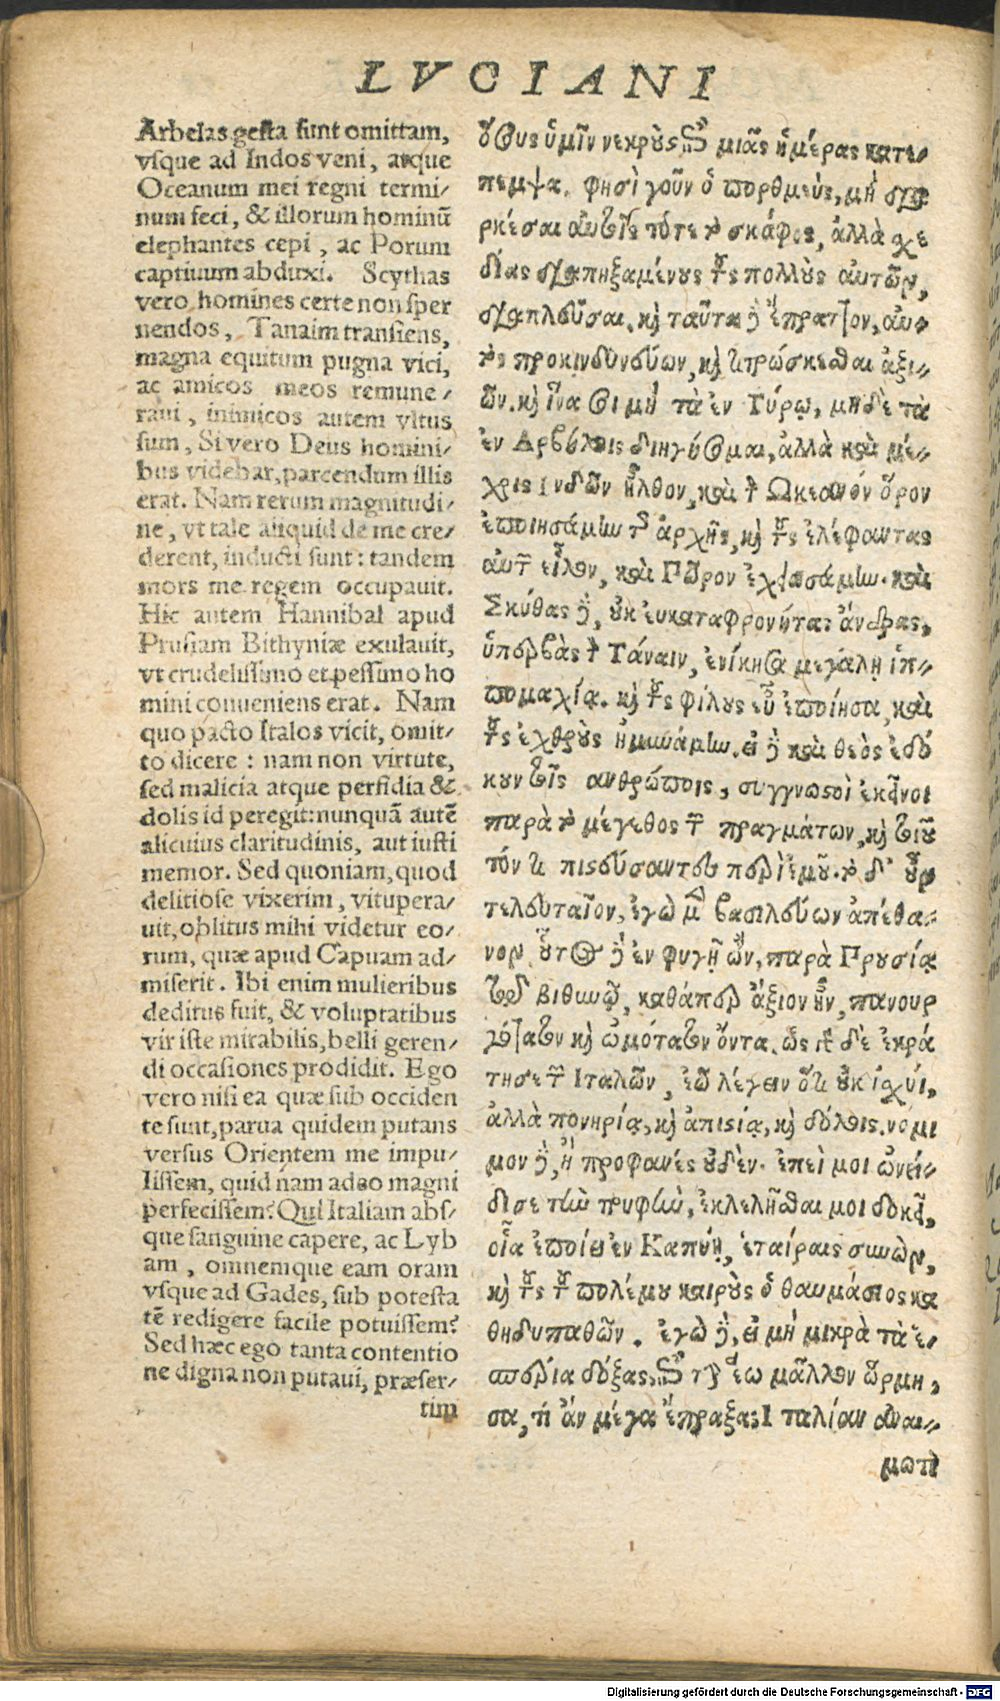 LVCIANI
Arbelas gesta sunt omittam,
vsque ad Indos veni, atque
Oceanum mei regni termi/
num feci, & illorum hominū
elephantes cepi, ac Porum
captiuum abduxi. Scythas
vero homines certe non sper
nendos, Tanaim transiens,
magna equitum pugna vici,
ac amicos meos remune/
raui, inimicos autem vltus
sum, Si vero Deus homini/
bus videbar, parcendum illis
erat. Nam rerum magnitudi/
ne, vt tale aliquid de me cre/
derent, inducti sunt: tandem
mors me regem occupauit.
Hic autem Hannibal apud
Prusiam Bithyniæ exulauit,
vt crudelissimo et pessimo ho
mini conueniens erat. Nam
quo pacto Italos vicit, omit/
to dicere: nam non virtute,
sed malicia atque perfidia &
dolis id peregit: nunquā autē
alicuius claritudinis, aut iusti
memor. Sed quoniam, quod
delitiose vixerim, vitupera/
uit, oblitus mihi videtur eo/
rum, quæ apud Capuam ad/
miserit. Ibi enim mulieribus
deditus fuit, & voluptatibus
vir iste mirabilis, belli geren/
di occasiones prodidit. Ego
vero nisi ea quæ sub occiden
te sunt, parua quidem putans
versus Orientem me impu/
lissem, quid nam adeo magni
perfecissem? Qui Italiam abs/
que sanguine capere, ac Lyb
am, omnemque eam oram
vsque ad Gades, sub potesta
tē redigere facile potuissem?
Sed hæc ego tanta contentio
ne digna non putaui, præser/
tim
ούσους ὑμῖν νεκροὺς ἐπὶ μιᾶς ἡμέρας κατε/
πεμψα. φησὶ γοῦν ὁ πορθμεὺς, μὴ δια
ρκέσαι αὐτοῖς τότε τὸ σκάφος, ἀλλὰ σχε
δίας διαπηξαμένους τοὺς πολλοὺς αὐτῶν,
διαπλεῦσαι. καὶ ταῦτα δὲ ἔπραττον, αὐ/
τὸς προκινδυνεύων, καὶ τιτρώσκεσθαι ἀξι/
ῶν. καὶ ἵνα σοι μὴ τὰ ἐν Τύρῳ, μηδὲ τὰ
ἐν Ἀρβήλοις διηγήσωμαι, ἀλλὰ καὶ μέ/
χρις Ἰνδῶν ἦλθον, καὶ τὸν Ὠκεανὸν ὅρον
ἐποιησάμην τῆς ἀρχῆς, καὶ τοὺς ἐλέφαντας
αὐτῶν εἷλον, καὶ Πῶρον ἐχειρωσάμην. καὶ
Σκύθας δὲ, οὐκ εὐκαταφρονήτους ἄνδρας,
ὑπερβὰς τὸν Τάναιν, ἐνίκησα μεγάλῃ ἱπ/
πομαχίᾳ. καὶ τοὺς φίλους εὖ ἐποίησα, καὶ
τοὺς ἐχθροὺς ἠμυνάμην. εἰ δὲ καὶ θεὸς ἐδό
κουν τοῖς ἀνθρώποις, συγγνωστοὶ ἐκεῖνοι
παρὰ τὸ μέγεθος τῶν πραγμάτων, καὶ τοιοῦ
τόν τι πιστεύσαντες περὶ ἐμοῦ. τὸ δ' οὖν
τελευταῖον, ἐγὼ μὲν βασιλεύων ἀπέθα/
νον. οὗτος δὲ ἐν φυγῇ ὢν, παρὰ Προυσίᾳ
τῷ βιθυνῷ, καθάπερ ἄξιον ἦν, πανουρ
γότατον καὶ ὠμότατον ὄντα. ὡς γὰρ δὲ ἐκρά
τησε τῶν Ἰταλῶν, ἐῶ λέγειν ὅτι οὐκ ἰσχύϊ,
ἀλλὰ πονηρίᾳ, καὶ ἀπιστίᾳ, καὶ δόλοις. νόμι
μον δὲ, ἢ προφανὲς οὐδὲν. ἐπεὶ μοι ὠνεί/
δισε τὴν τρυφὴν, ἐκλελῆσθαι μοι δοκεῖ,
οἷα ἐποίει ἐν Καπύῃ, ἑταίραις συνὼν,
καὶ τοὺς τοῦ πολέμου καιροὺς ὁ θαυμάσιος κα
θηδυπαθῶν. ἐγὼ δὲ, εἰ μὴ μικρὰ τὰ ἑ/
σπέρια δόξας, ἐπὶ τὴν ἕω μᾶλλον ὥρμη,
σα, τί ἂν μέγα ἔπραξα; Ἰταλίαν ἀναι/
μωτὶ
Digitalisierung gefördert durch die Deutsche Forschungsgemeinschaft - DFG